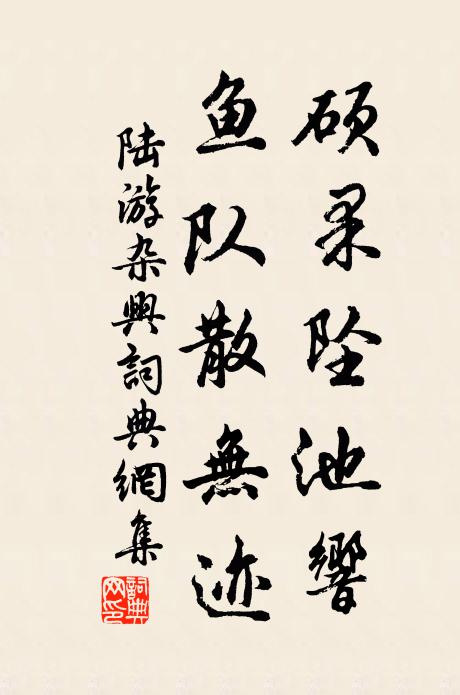 硕果坠池響
鱼队散無迹
陆游杂興詞典網集
詞典网印